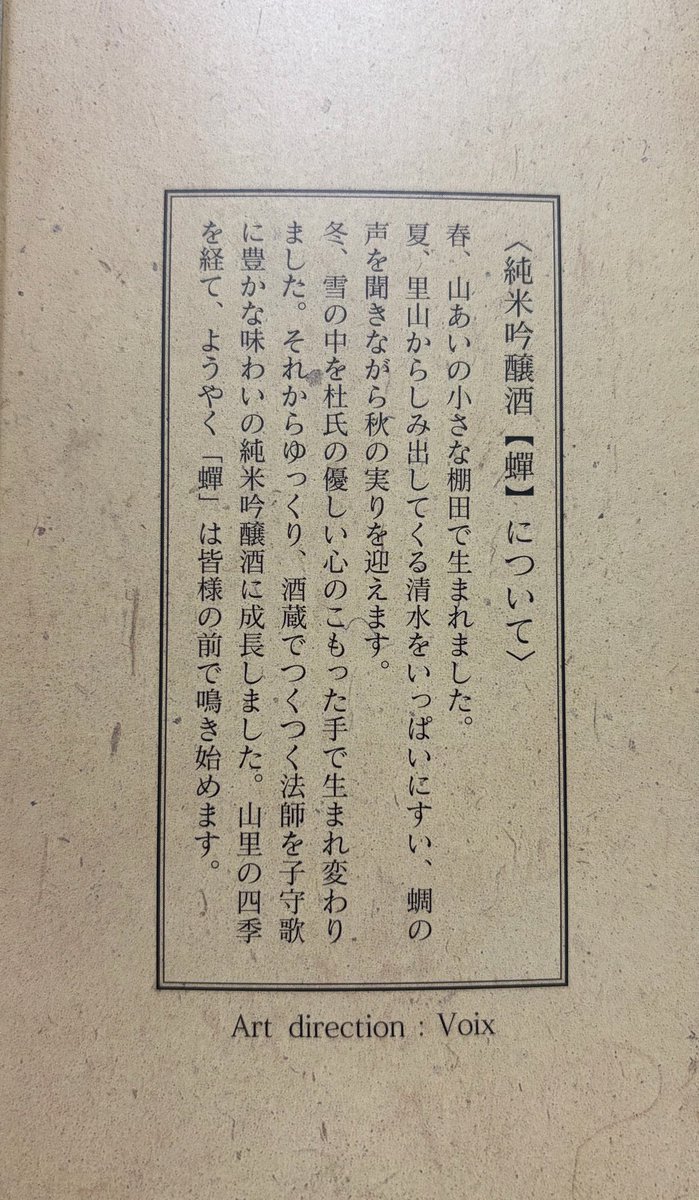 〈純米吟醸酒【蟬】について〉
春、山あいの小さな棚田で生まれました。
夏、里山からしみ出してくる清水をいっぱいにすい、蜩の
声を聞きながら秋の実りを迎えます。
冬、雪の中を杜氏の優しい心のこもった手で生まれ変わり
ました。それからゆっくり、酒蔵でつくつく法師を子守歌
に豊かな味わいの純米吟醸酒に成長しました。山里の四季
を経て、ようやく「蟬」は皆様の前で鳴き始めます。
Art direction : Voix